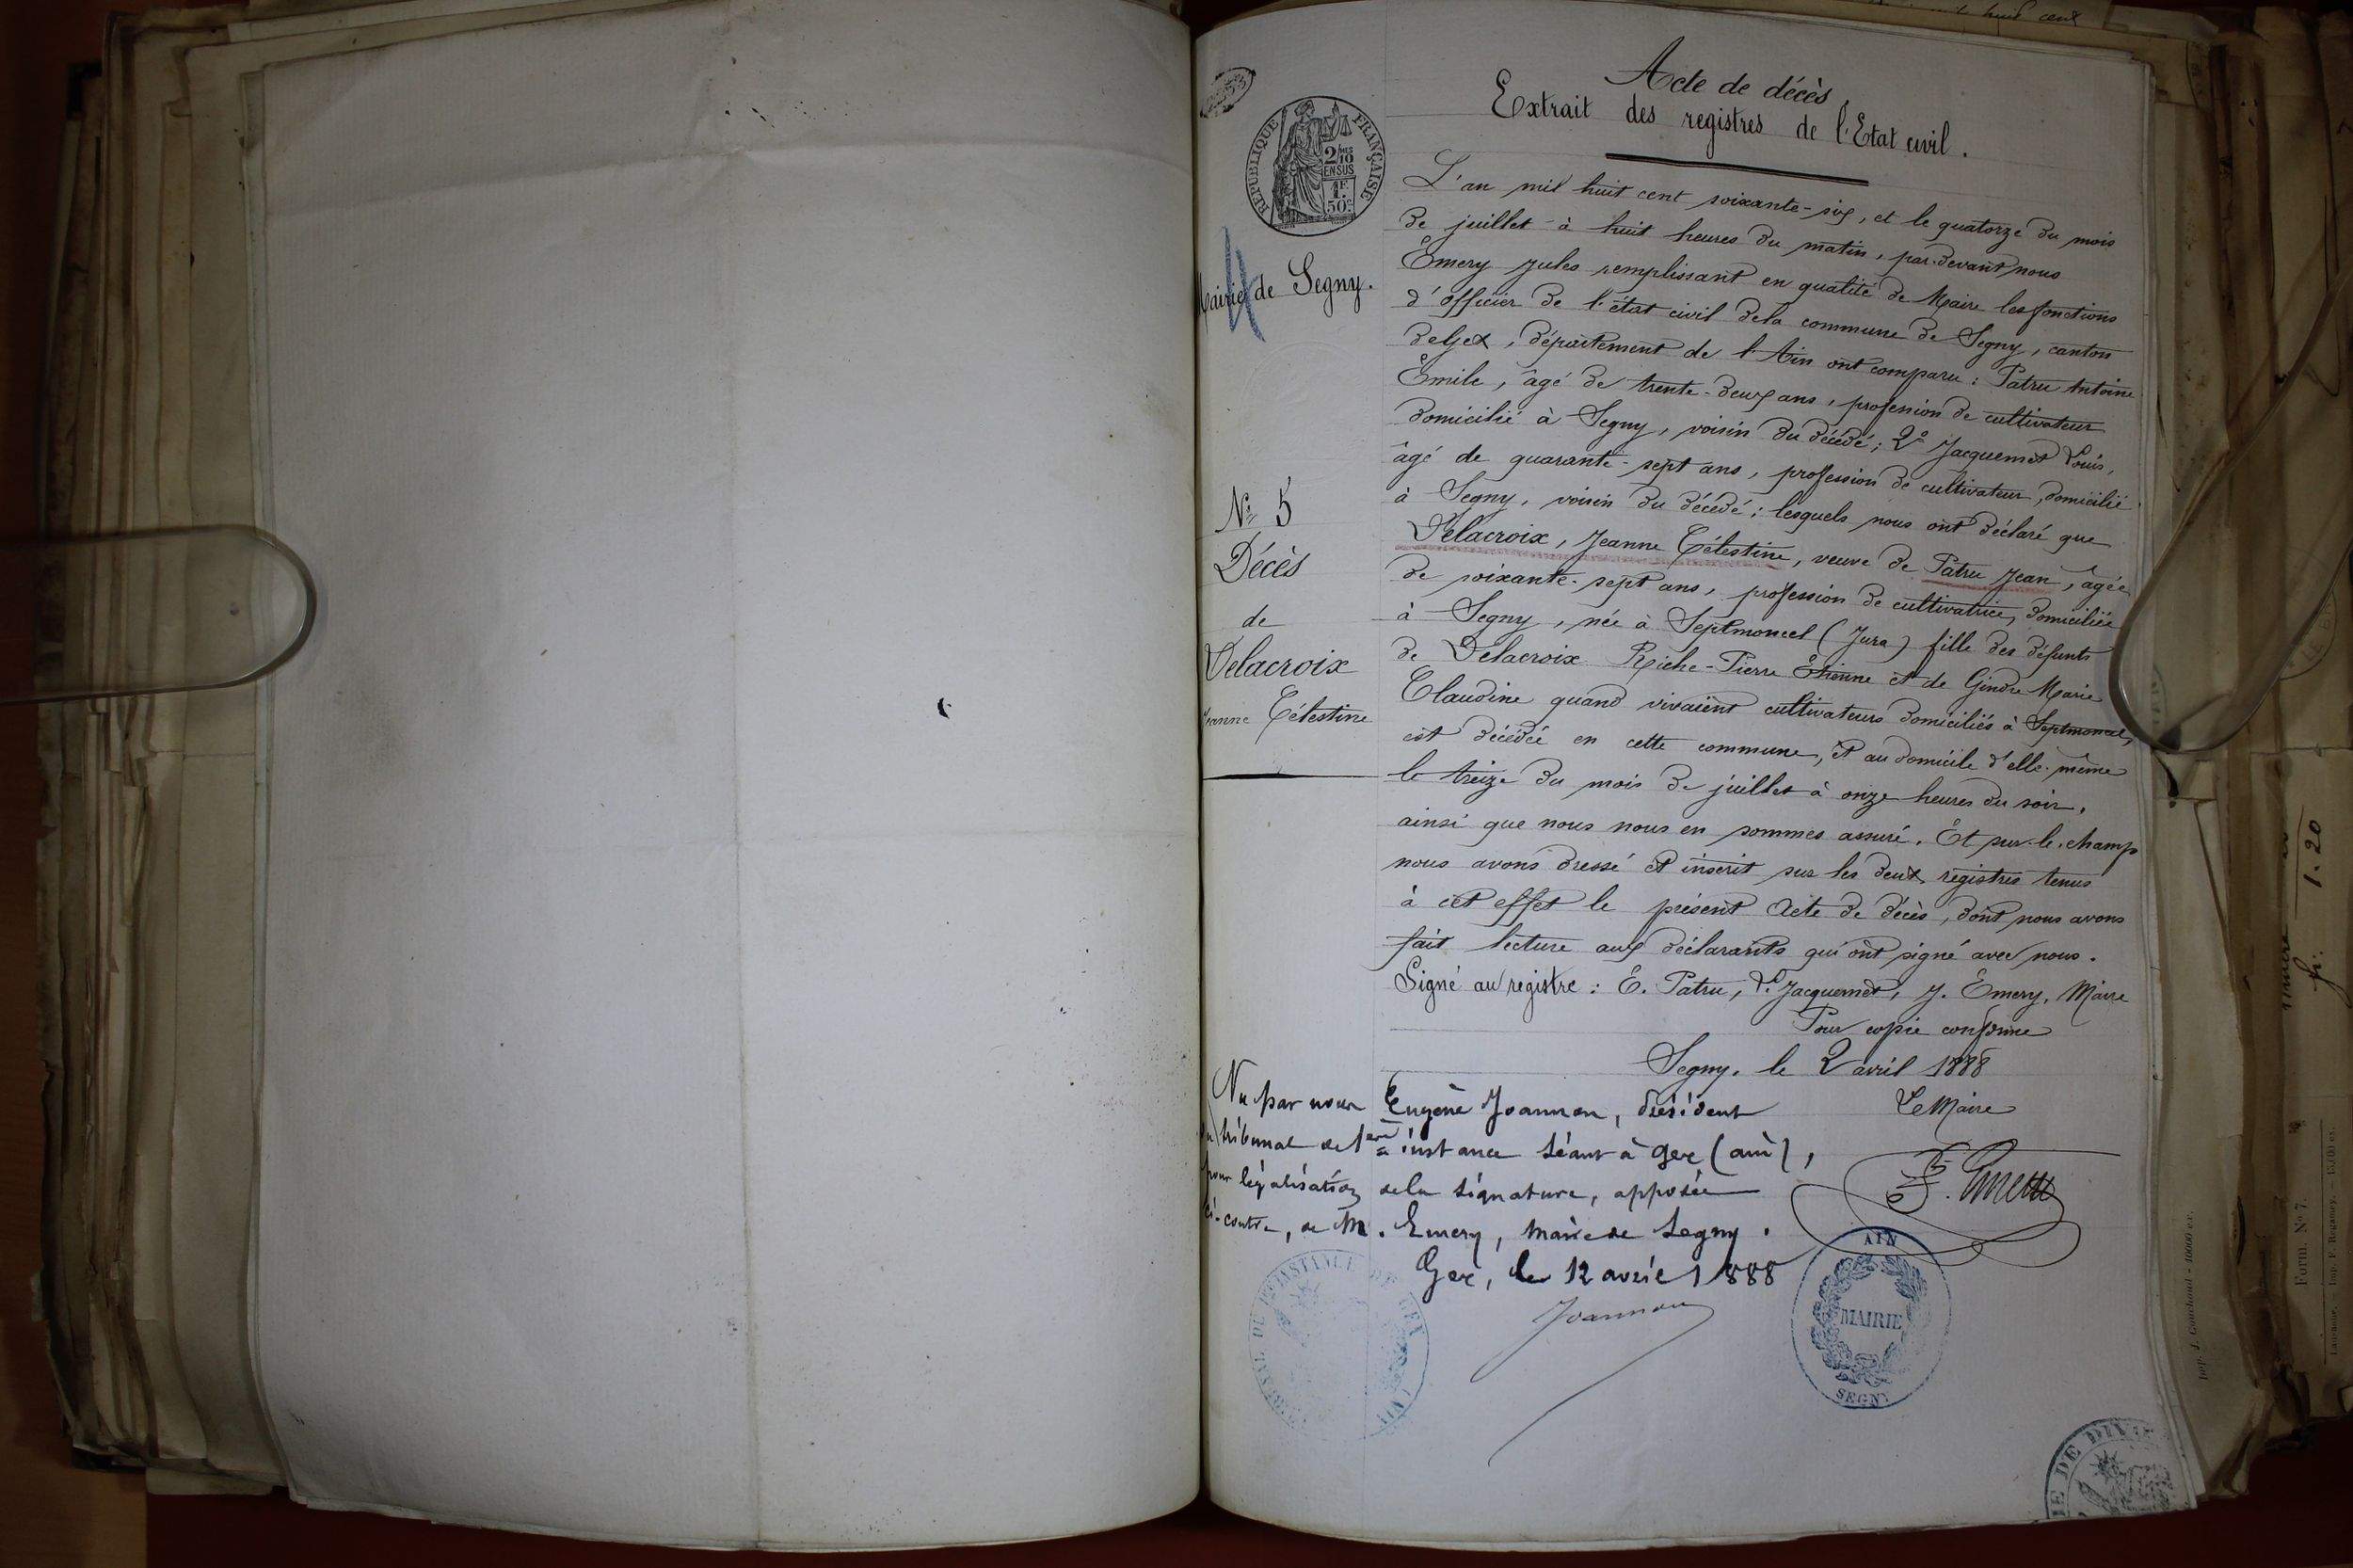 Acte de décès
Extrait des registres de l'Etat civil.
RÉPUBLIQUE FRANÇAISE
2/10
EN SUS
1F.
50c.
Mairie de Segny.
4
L'an mil huit cent soixante-six, et le quatorze du mois
de juillet à huit heures du matin, par-devant nous
Emery Jules remplissant en qualité de Maire les fonctions
d'officier de l'état civil de la commune de Segny, canton
de Gex, département de l'Ain ont comparu : Patru Antoine
Emile, âgé de trente-deux ans, profession de cultivateur
domicilié à Segny, voisin du décédé ; 2° Jacquemet Louis,
âgé de quarante-sept ans, profession de cultivateur, domicilié
à Segny, voisin du décédé ; lesquels nous ont déclaré que
Delacroix, Jeanne Célestine, veuve de Patru Jean, âgée
de soixante-sept ans, profession de cultivatrice, domiciliée
à Segny, née à Septmoncel (Jura) fille des défunts
de Delacroix Riche-Pierre Etienne et de Gindre Marie
Claudine quand vivaient cultivateurs domiciliés à Septmoncel,
est décédée en cette commune, et au domicile d'elle-même
le treize du mois de juillet à onze heures du soir,
ainsi que nous nous en sommes assuré. Et sur-le-champ
nous avons dressé et inscrit sur les deux registres tenus
à cet effet le présent acte de décès, dont nous avons
fait lecture aux déclarants qui ont signé avec nous.
Signé au registre : E. Patru, L. Jacquemet, J. Emery, Maire
Pour copie conforme
Segny, le 2 avril 1888
Le Maire
F. Emery
N° 5
Décès
de
Delacroix
Jeanne Célestine
Vu par nous Eugène Joannon, président
du tribunal de 1ère instance séant à Gex (ain),
pour légalisation de la signature, apposée
ci-contre, de M. Emery, maire de Segny.
Gex, le 12 avril 1888
Joannon
TRIBUNAL DE 1ère INSTANCE DE GEX
AIN
AIN
MAIRIE
SEGNY
fr. 1.20
Form. N° 7.
Imp. J. Couchoud - 10000 ex.
Lausanne. Imp. F. Regamey.